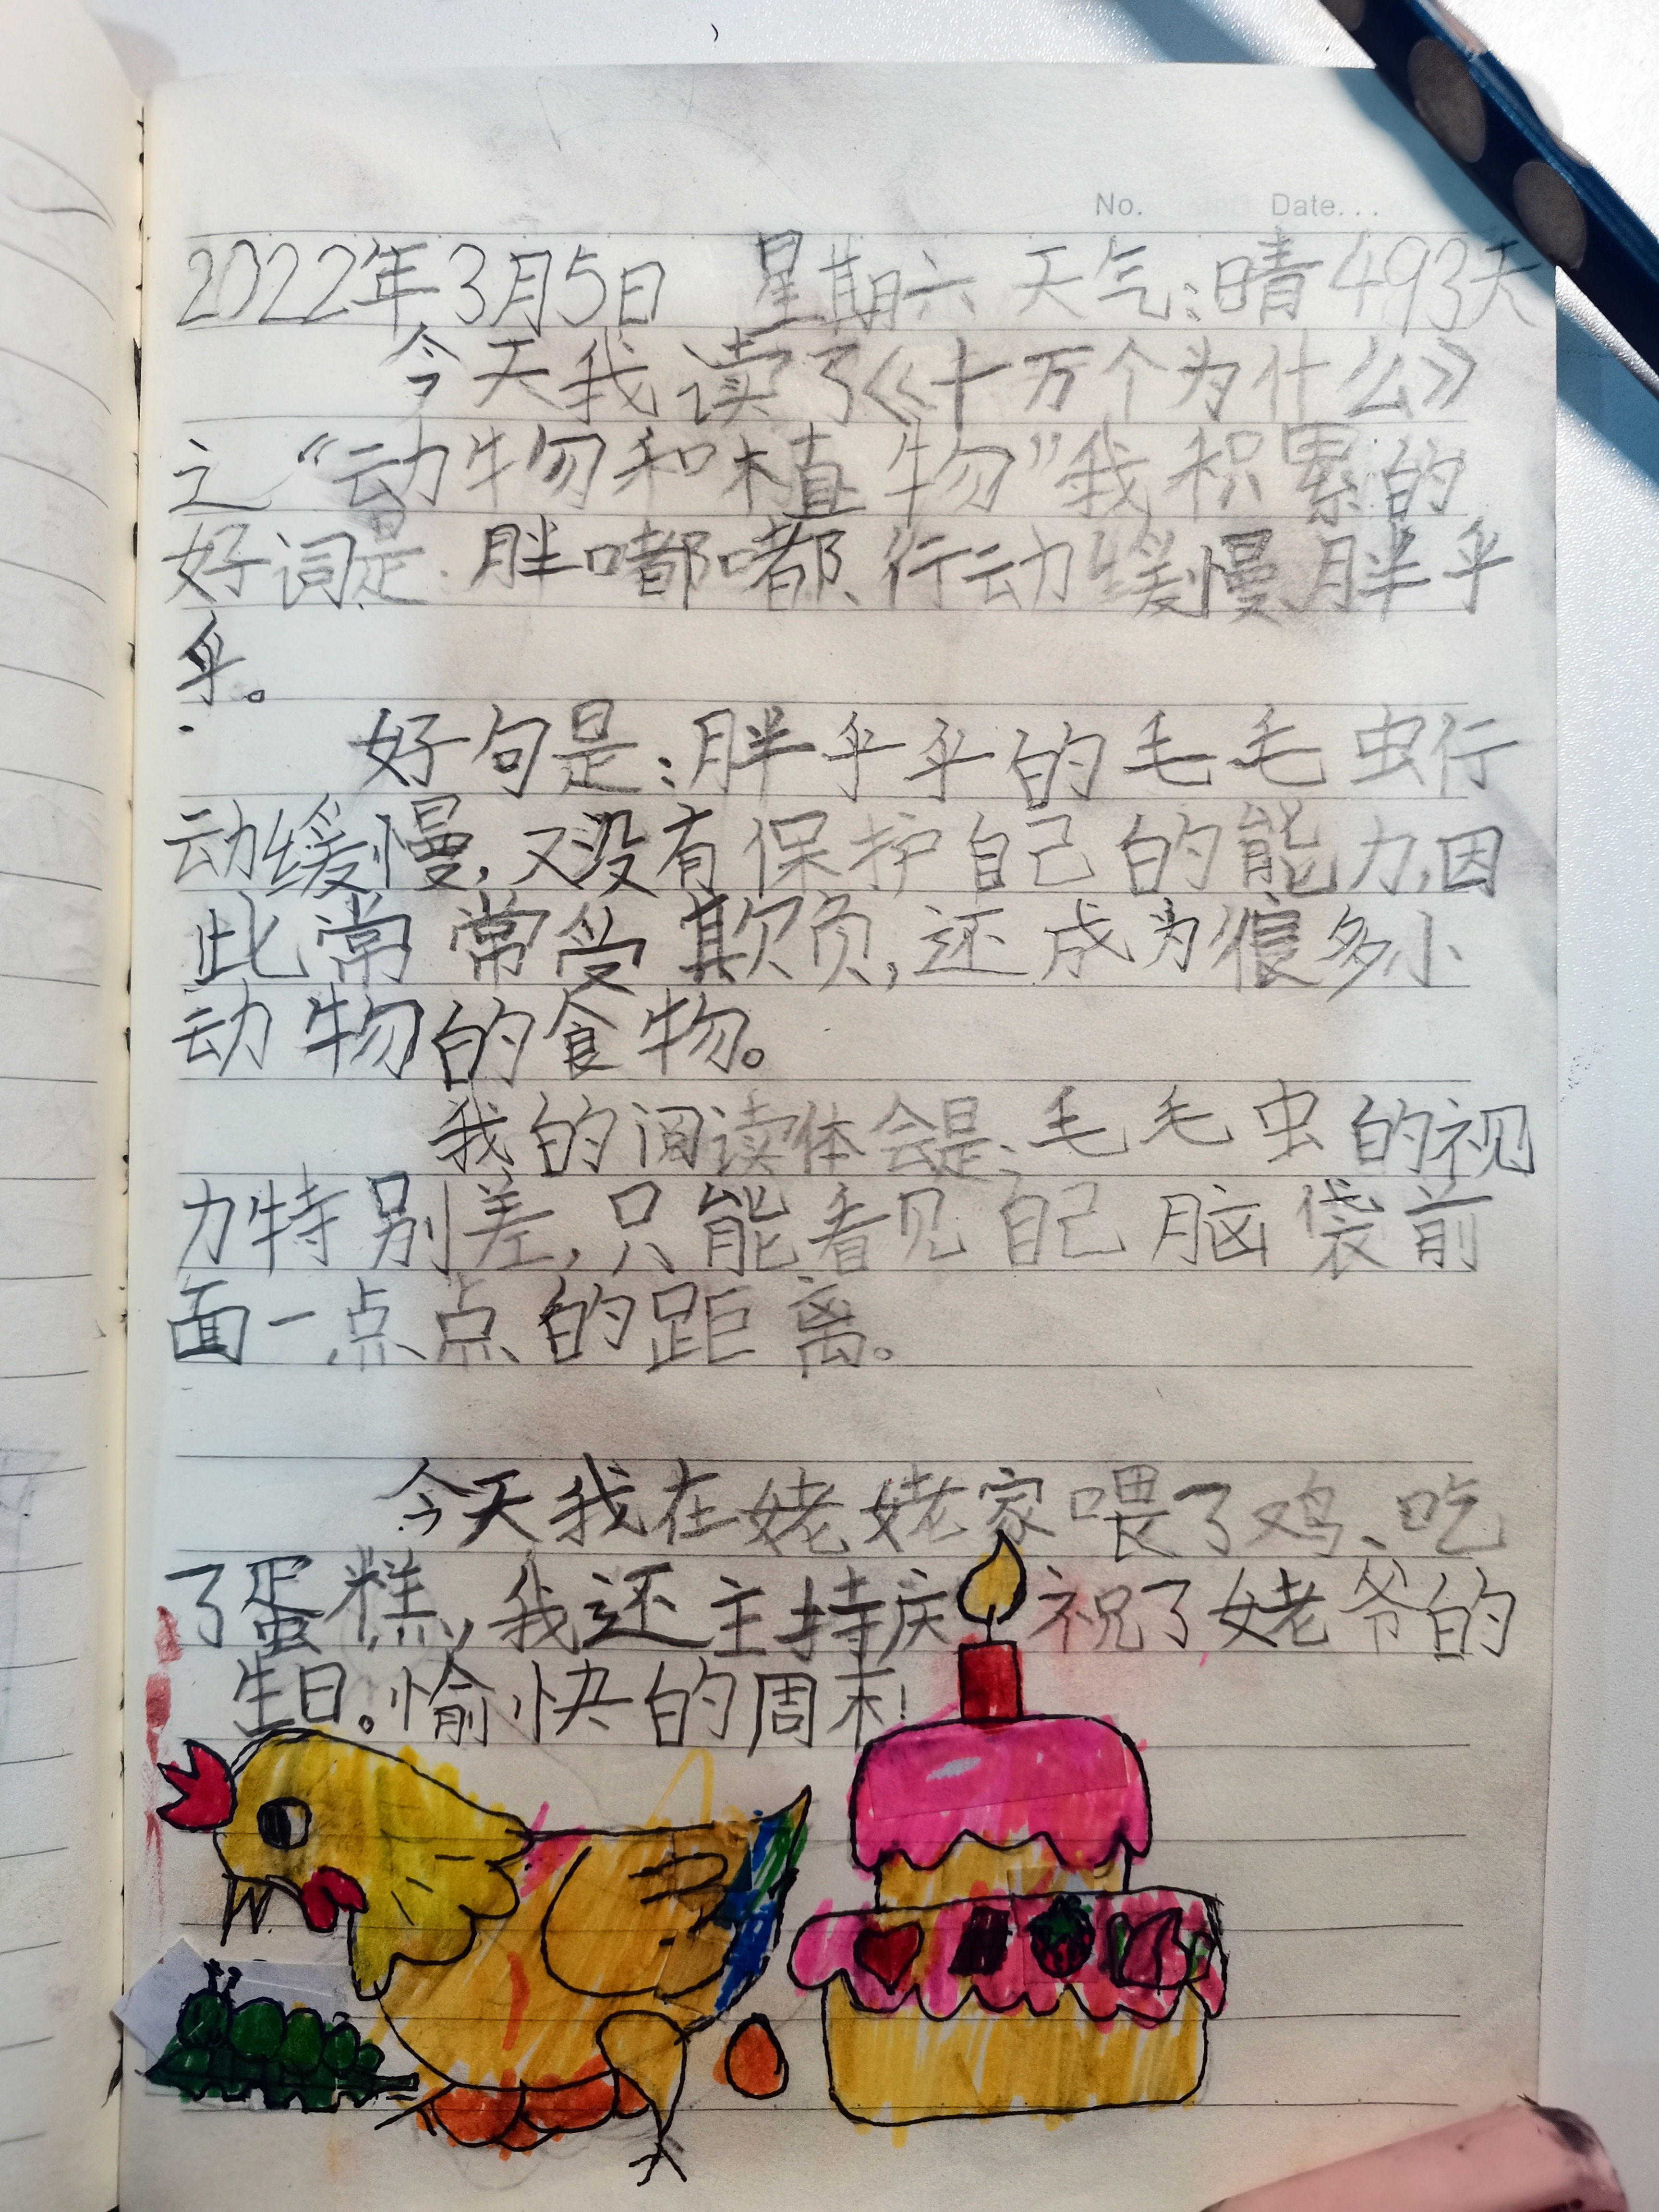 No. Date...
2022年3月5日 星期六 天气:晴 493天
今天我读了《十万个为什么》
之“动物和植物”我积累的
好词是:胖嘟嘟、行动缓慢、胖乎
乎。
好句是:胖乎乎的毛毛虫行
动缓慢,又没有保护自己的能力,因
此常常受欺负,还成为很多小
动物的食物。
我的阅读体会是:毛毛虫的视
力特别差,只能看见自己脑袋前
面一点点的距离。
今天我在姥姥家喂了鸡、吃
了蛋糕,我还主持庆祝了姥爷的
生日。愉快的周末!